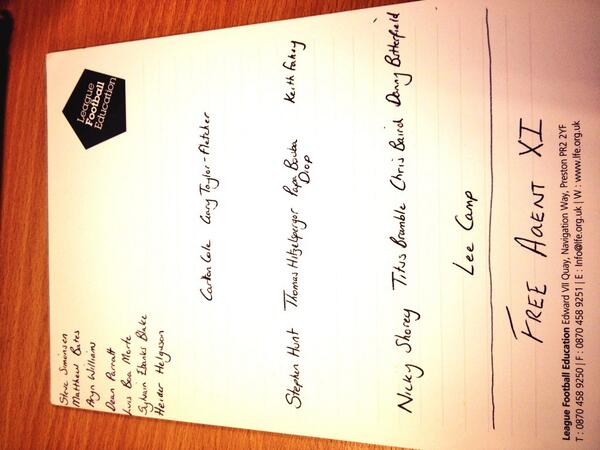 League
Football
Education
Steve Simonsen
Matthew Bates
Aryn Williams
Dean Parratt
Luis Boa Morte
Sylvain Ebanks Blake
Heider Helguson
Carlton Cole Gary Taylor-Fletcher
Stephen Hunt Thomas Hitzelsperger Papa Bouba Diop Keith Fahey
Nicky Shorey Titus Bramble Chris Baird Danny Butterfield
Lee Camp
FREE AGENT XI
League Football Education Edward VII Quay, Navigation Way, Preston PR2 2YF
T : 0870 458 9250 | F : 0870 458 9251 | E : Info@lfe.org.uk | W : www.lfe.org.uk